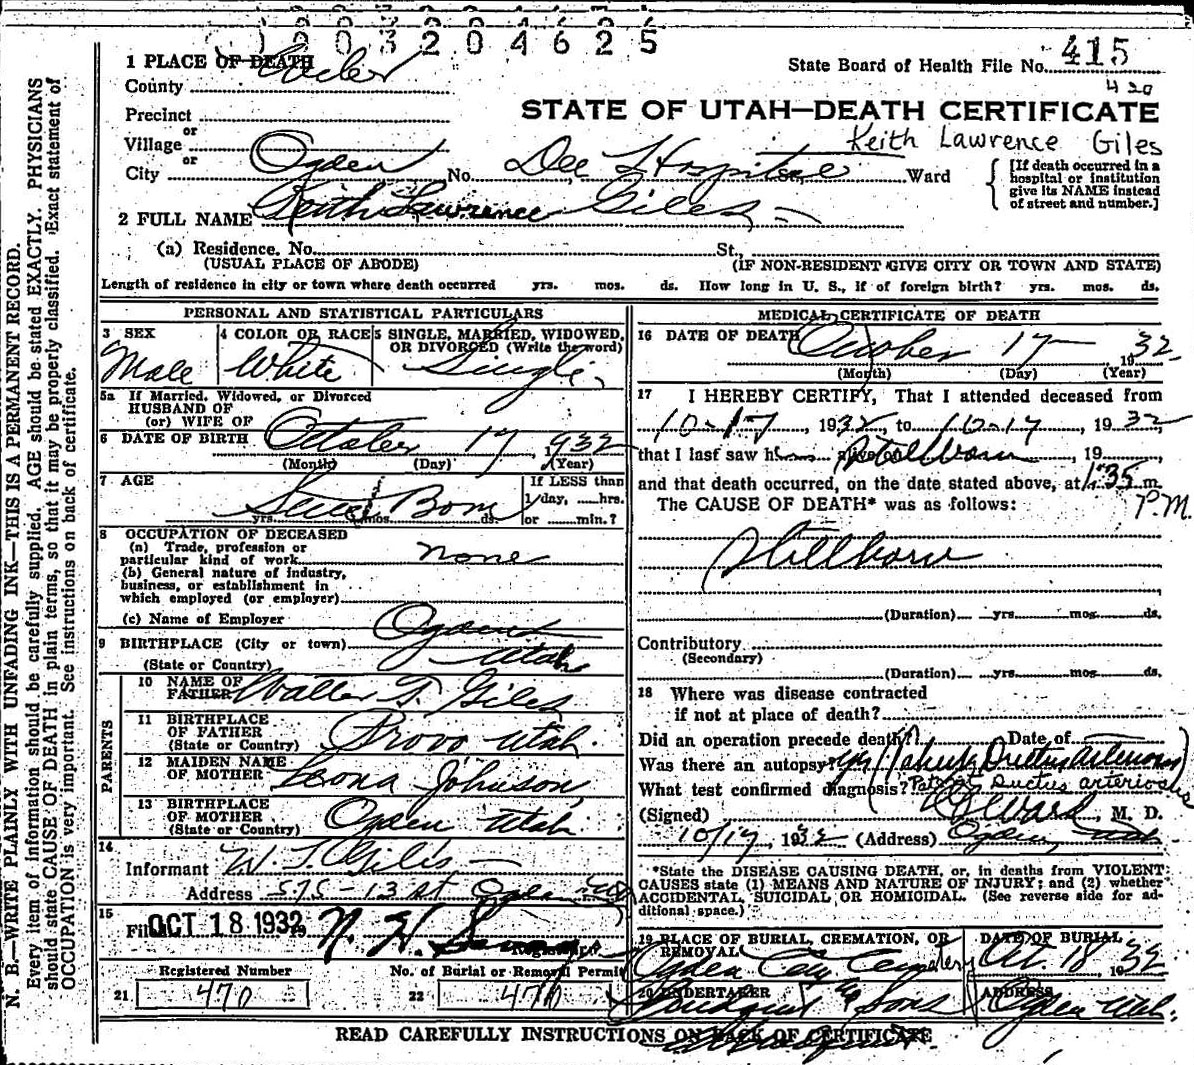 1003204625
1 PLACE OF DEATH
State Board of Health File No. 415
County Weber
420
STATE OF UTAH—DEATH CERTIFICATE
Precinct
or
Village
Keith Lawrence Giles
or
City Ogden No. Dee Hospital St., Ward
[If death occurred in a hospital or institution give its NAME instead of street and number.]
2 FULL NAME Keith Lawrence Giles
(a) Residence. No. St.,
(USUAL PLACE OF ABODE) (IF NON-RESIDENT GIVE CITY OR TOWN AND STATE)
Length of residence in city or town where death occurred yrs. mos. ds. How long in U. S., if of foreign birth? yrs. mos. ds.
PERSONAL AND STATISTICAL PARTICULARS
3 SEX
Male
4 COLOR OR RACE
White
5 SINGLE, MARRIED, WIDOWED,
OR DIVORCED (Write the word)
Single
5a If Married, Widowed, or Divorced
HUSBAND OF
(or) WIFE OF
6 DATE OF BIRTH October 17 1932
(Month) (Day) (Year)
7 AGE
Still Born
yrs. mos. ds.
If LESS than
1 day, hrs.
or min.?
8 OCCUPATION OF DECEASED
(a) Trade, profession or
particular kind of work none
(b) General nature of industry,
business, or establishment in
which employed (or employer)
(c) Name of Employer
9 BIRTHPLACE (City or town) Ogden
(State or Country) Utah
PARENTS
10 NAME OF
FATHER Walter T. Giles
11 BIRTHPLACE
OF FATHER
(State or Country) Provo Utah.
12 MAIDEN NAME
OF MOTHER Leona Johnson
13 BIRTHPLACE
OF MOTHER
(State or Country) Ogden Utah
14
Informant W. T. Giles
Address 575-13 St Ogden
15
Filed OCT 18 1932 N. H.
Registrar.
Registered Number
21 470
No. of Burial or Removal Permit
22 470
MEDICAL CERTIFICATE OF DEATH
16 DATE OF DEATH October 17 1932
(Month) (Day) (Year)
17 I HEREBY CERTIFY, That I attended deceased from
10-17, 1932, to 10-17, 1932,
that I last saw him alive on Stillborn, 19
and that death occurred, on the date stated above, at 1:35 m.
P.M.
The CAUSE OF DEATH* was as follows:
Stillborn
(Duration) yrs. mos. ds.
Contributory
(Secondary)
(Duration) yrs. mos. ds.
18 Where was disease contracted
if not at place of death?
Did an operation precede death? Date of
Was there an autopsy? yes (Patent Ductus arteriosus)
What test confirmed diagnosis? Patent Ductus arteriosis
(Signed) Ward, M. D.
10/17 1932 (Address) Ogden, Utah
*State the DISEASE CAUSING DEATH, or, in deaths from VIOLENT
CAUSES state (1) MEANS AND NATURE OF INJURY; and (2) whether
ACCIDENTAL, SUICIDAL, OR HOMICIDAL. (See reverse side for ad-
ditional space.)
19 PLACE OF BURIAL, CREMATION, OR
REMOVAL
Ogden City Cemetery
DATE OF BURIAL
Oct. 18, 1932
20 UNDERTAKER
Lindquist & Sons
ADDRESS
Ogden Utah.
READ CAREFULLY INSTRUCTIONS ON BACK OF CERTIFICATE
N. B.—WRITE PLAINLY WITH UNFADING INK—THIS IS A PERMANENT RECORD.
Every item of information should be carefully supplied. AGE should be stated EXACTLY. PHYSICIANS
should state CAUSE OF DEATH in plain terms, so that it may be properly classified. Exact statement of
OCCUPATION is very important. See instructions on back of certificate.